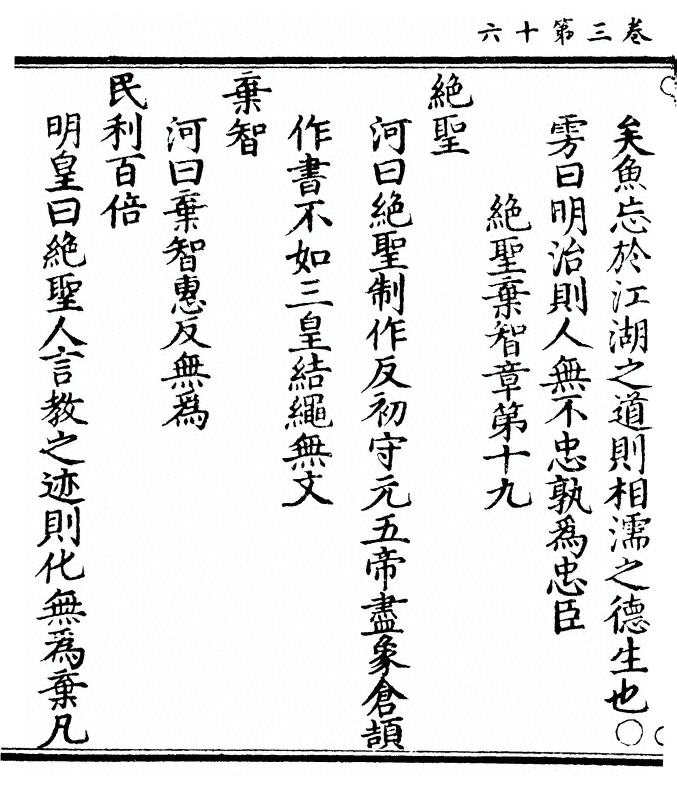 卷三第十六
矣魚忘於江湖之道則相濡之德生也○
雱曰明治則人無不忠孰爲忠臣
絶聖棄智章第十九
絶聖
河曰絶聖制作反初守元五帝盡象倉頡
作書不如三皇結繩無文
棄智
河曰棄智惠反無爲
民利百倍
明皇曰絶聖人言教之迹則化無爲棄凡